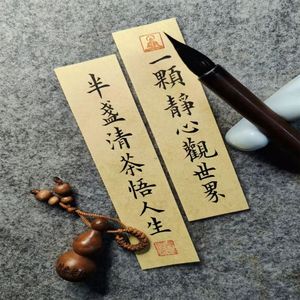 一顆靜心觀世界
半盞清茶悟人生